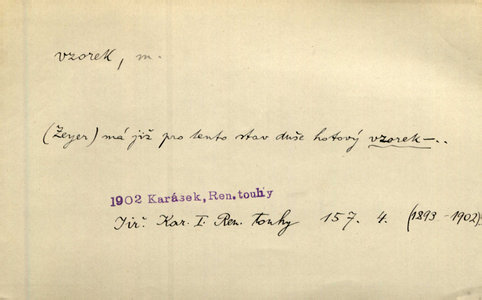 vzorek, m.
(Zeyer) má již pro tento stav duše hotový vzorek—..
1902 Karásek, Ren. touhy
Jiř. Kar. I. Ren. touhy 157. 4. (1893-1902)